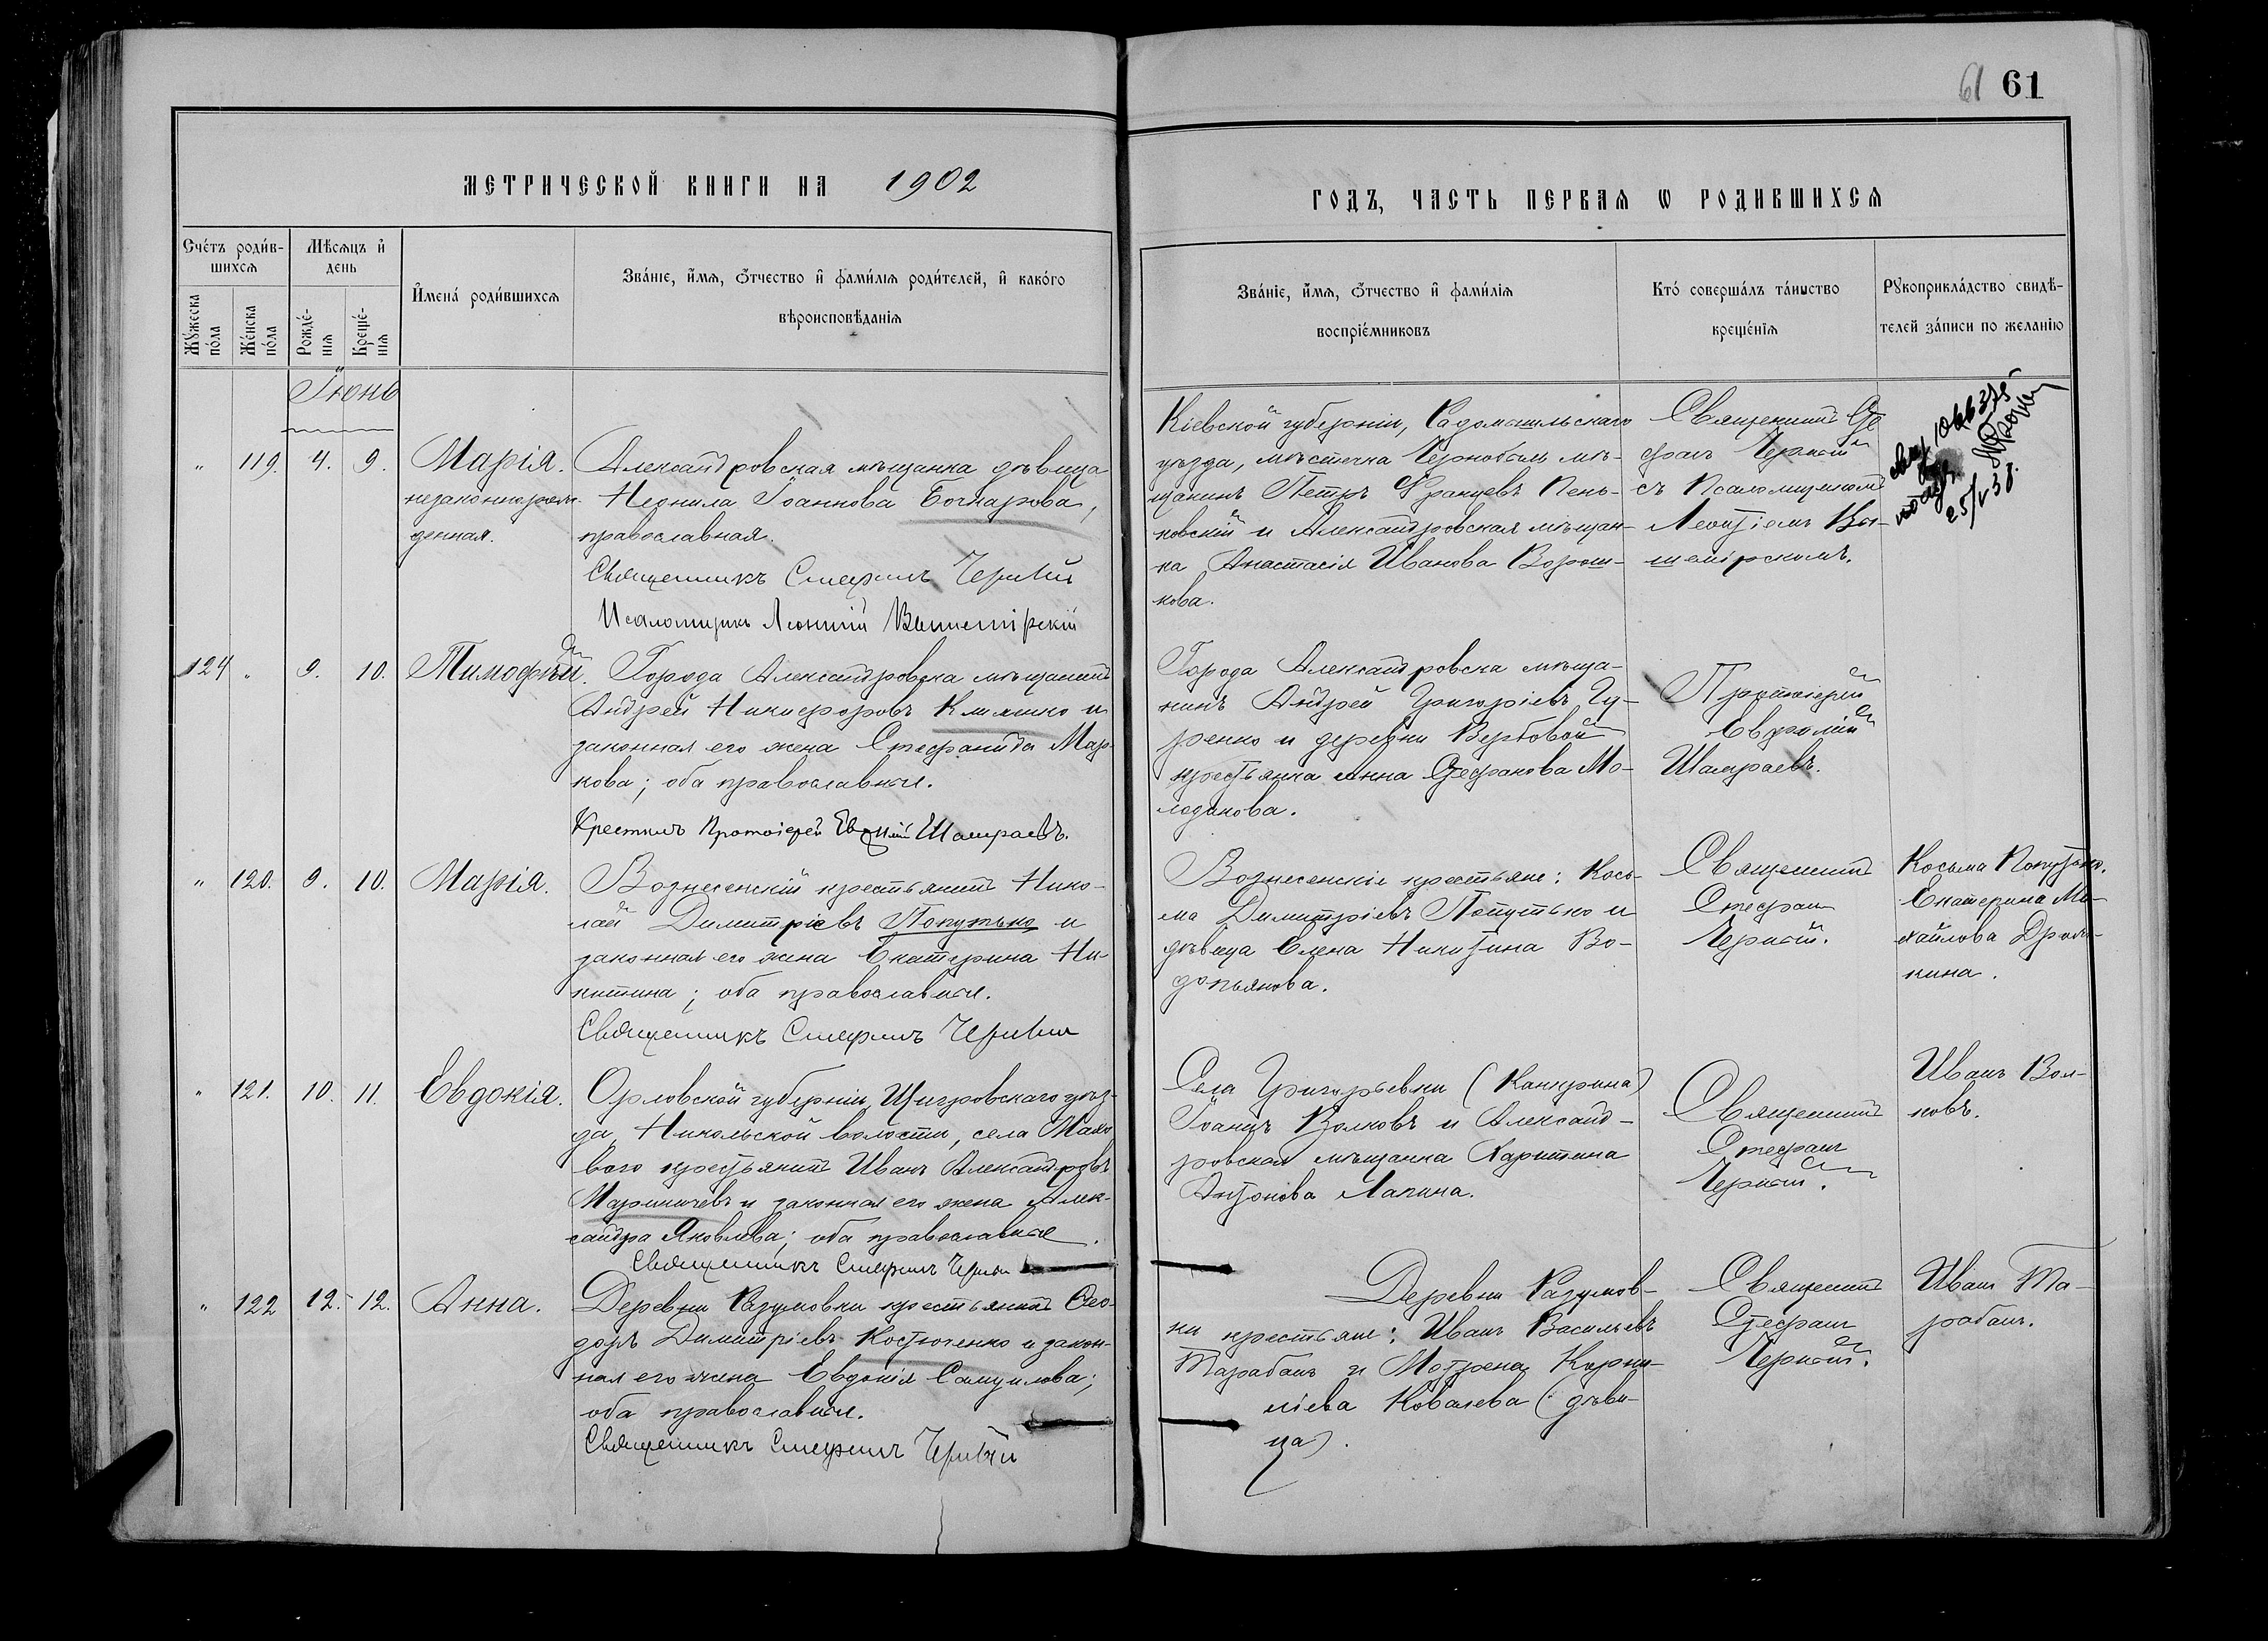 61 61
МЕТРИЧЕСКОЙ КНИГИ НА 1902
ГОДЪ, ЧАСТЬ ПЕРВАѦ Ѡ РОДИВШИХСѦ
Счетъ родив-
шихсѧ
Мѣсѧцъ и
день
Мꙋжеска
пола
Женска
пола
Рожде-
нїѧ
Креще-
нїѧ
Имена родившихсѧ
Званїе, имѧ, ѻтчество и фамилїѧ родителей, и какого
вѣроисповѣданїѧ
Званїе, имѧ, ѻтчество и фамилїѧ
воспрїемниковъ
Кто совершалъ таинство
крещенїѧ
Рꙋкоприкладство свидѣ-
телей записи по желанїю
Іюнь
" 119. 4. 9.
Марія.
незаконнорож-
денная.
Александровская мѣщанка дѣвица
Неонила Іоаннова Бочкарова,
православная.
Священникъ Стефанъ Черный
Псаломщикъ Леонтій Вышемірскій
Кіевской губерніи, Радомысльскаго
уѣзда, мѣстечка Чернобыль мѣ-
щанинъ Петръ Францевъ Пень-
ковскій и Александровская мѣщан-
ка Анастасія Иванова Ворош-
кова.
Священникъ Сте
фанъ Черный
съ Псаломщикомъ
Леонтіемъ Вы-
шемірскимъ.
25/V 38.
124 " 9. 10.
Тимофѣй.
Города Александровска мѣщанинъ
Андрей Никифоровъ Клименко и
законная его жена Стефанида Мар-
кова; оба православные.
Крестилъ Протоіерей Евфимій Шамраевъ.
Города Александровска мѣща-
нинъ Андрей Григоріевъ Гу-
ренко и деревни Вербовой
крестьянка Анна Стефанова Мо-
лодикова.
Протоіерей
Евфимій
Шамраевъ.
" 120. 9. 10.
Марія.
Вознесенскій крестьянинъ Нико-
лай Димитріевъ Попутько и
законная его жена Екатерина Ни-
китина; оба православные.
Священникъ Стефанъ Черный
Вознесенскіе крестьяне: Кось-
ма Димитріевъ Попутько и
дѣвица Елена Никитина Во-
допьянова.
Священникъ
Стефанъ
Черный.
Косьма Попутько.
Екатерина Ми-
хайлова
" 121. 10. 11.
Евдокія.
Орловской губерніи, Щигровскаго уѣз-
да, Никольской волости, села
крестьянинъ Иванъ Александровъ
Мариничевъ и законная его жена Алек-
сандра Яковлева; оба православные.
Священникъ Стефанъ Черный
Села Григорьевки (Канкрина)
Іоаннъ Волковъ и Александ-
ровская мѣщанка Харитина
Антонова Лапина.
Священникъ
Стефанъ
Черный.
Иванъ Вол-
ковъ.
" 122 12. 12.
Анна.
Деревни Разумовки крестьянинъ Ѳео-
доръ Димитріевъ Костюченко и закон-
ная его жена Евдокія Самуилова;
оба православные.
Священникъ Стефанъ Черный
Деревни Разумов-
ки крестьяне: Иванъ Васильевъ
Тарабанъ и Мотрона Корни-
ліева Ковалева (дѣви-
ца).
Священникъ
Стефанъ
Черный.
Иванъ Та-
рабанъ.